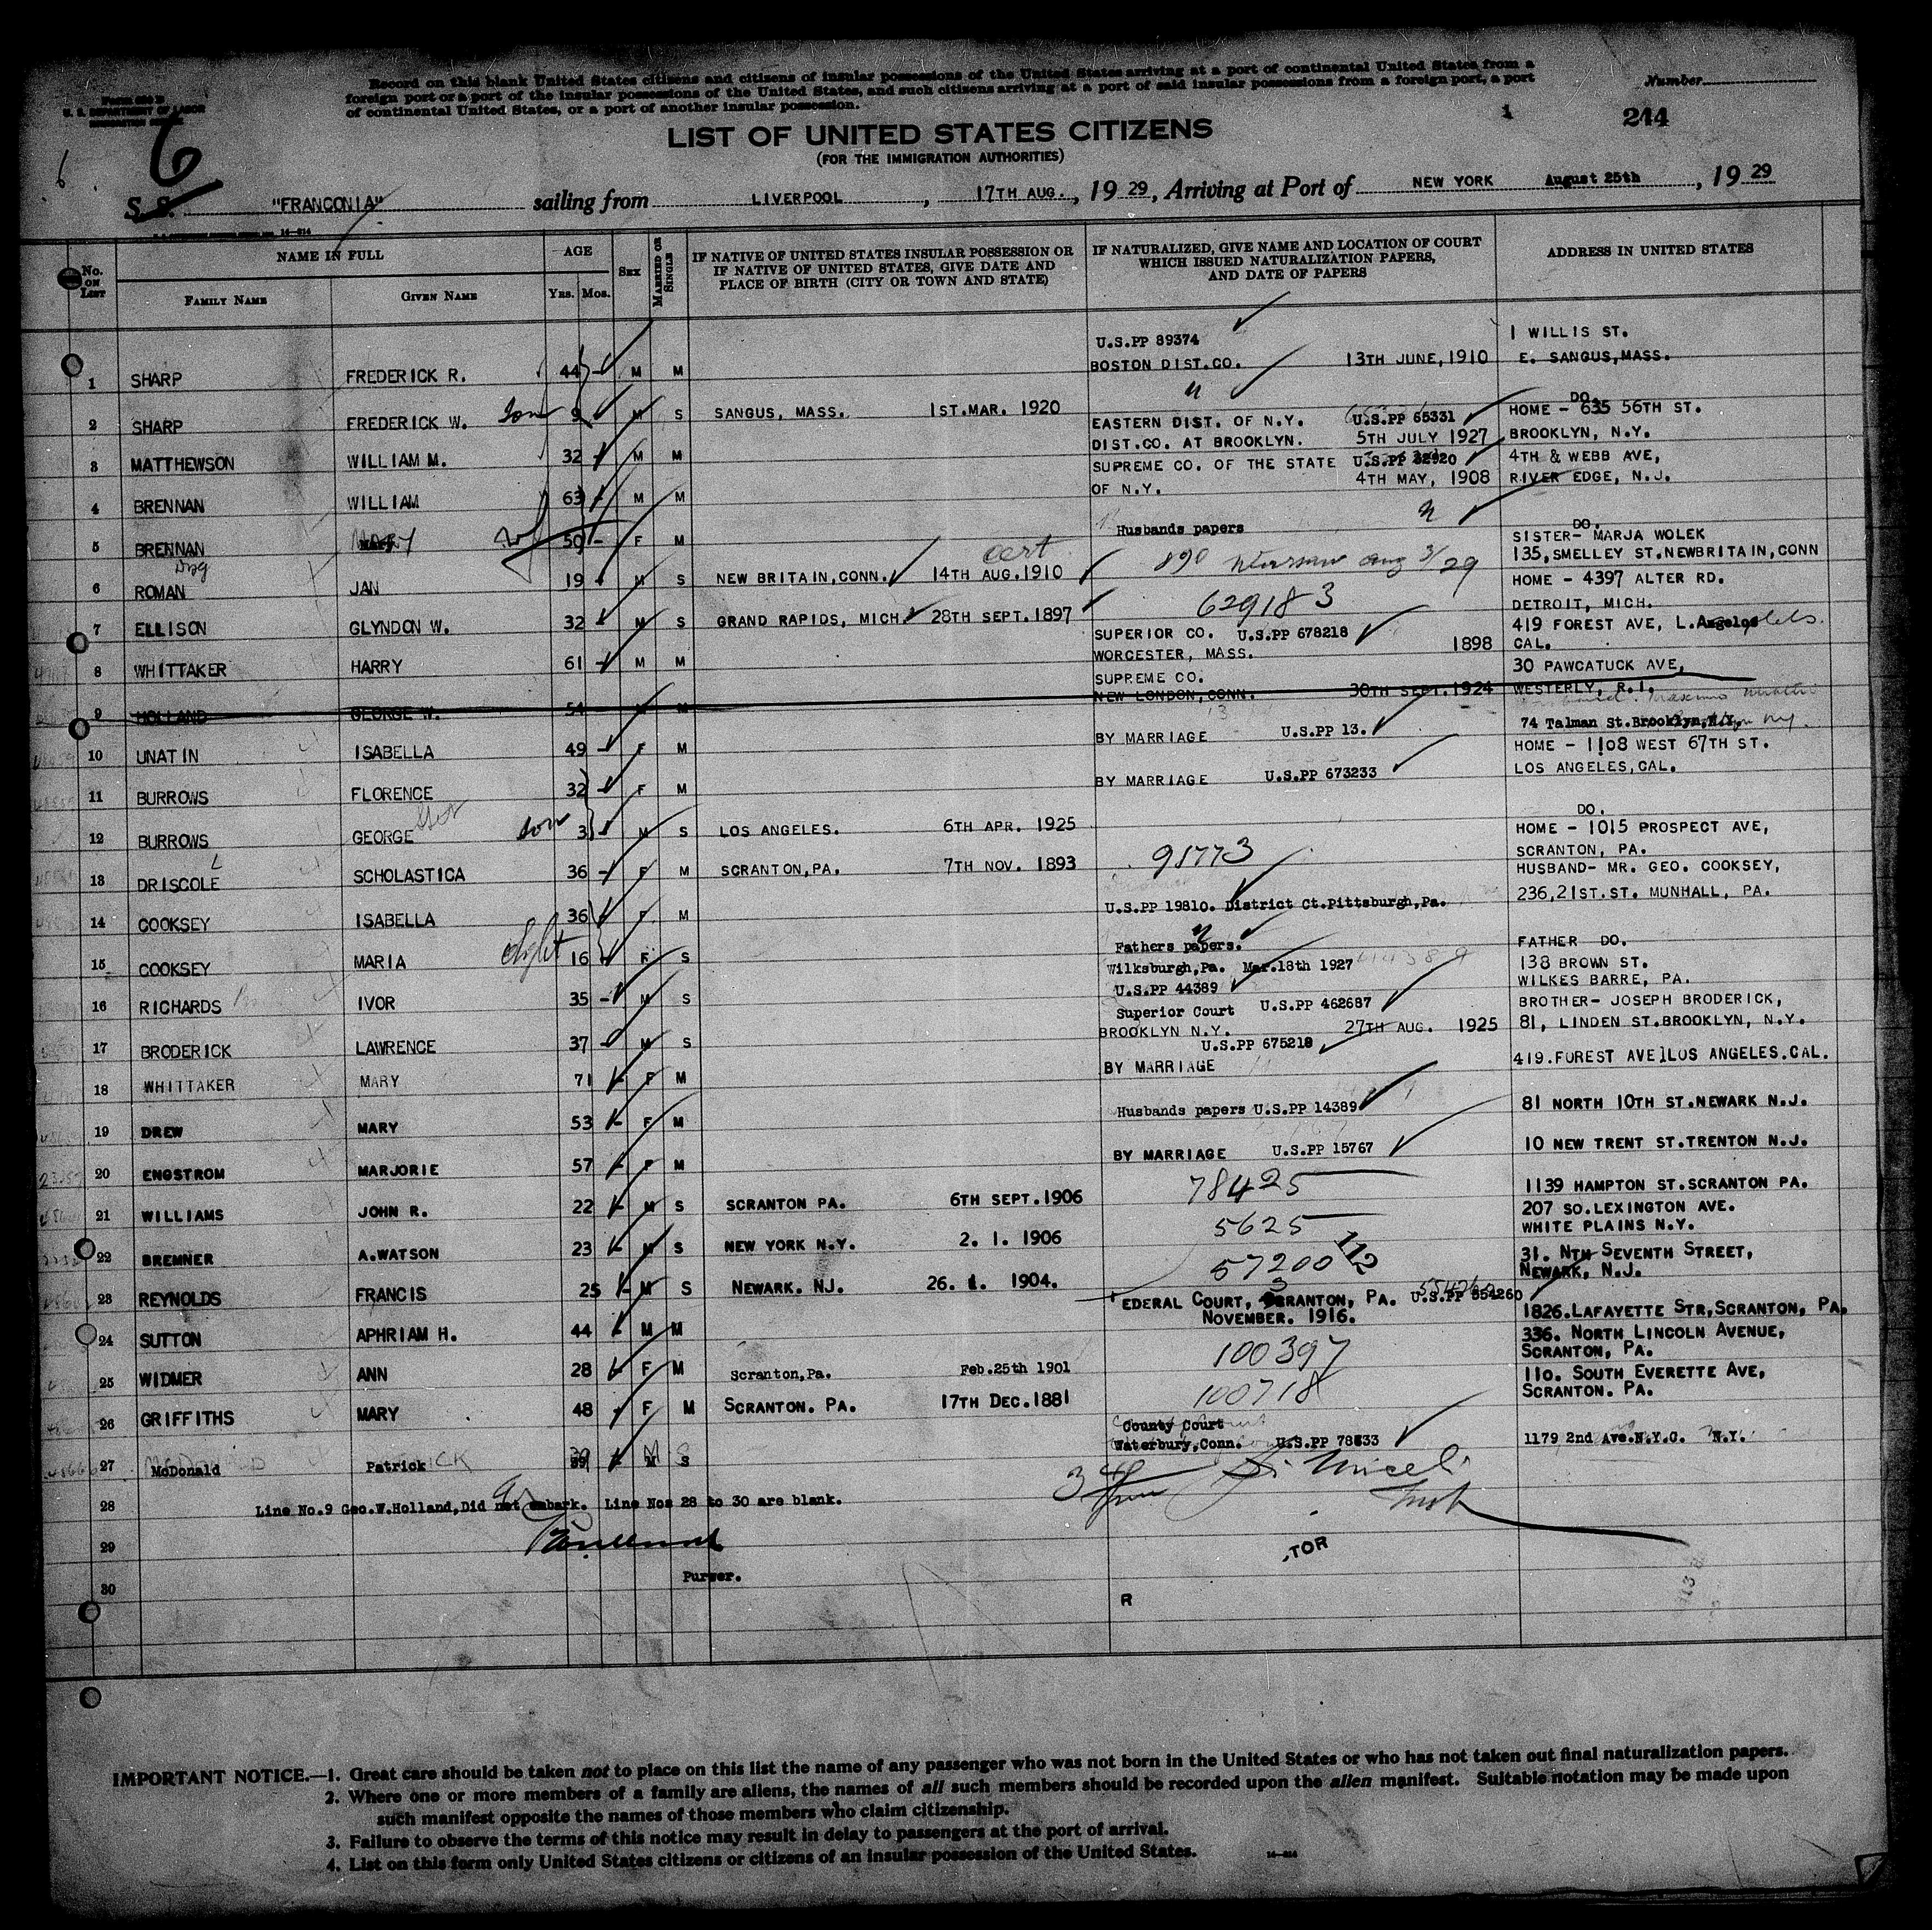 Record on this blank United States citizens and citizens of insular possessions of the United States arriving at a port of continental United States from a
foreign port or a port of the insular possessions of the United States, and such citizens arriving at a port of said insular possessions from a foreign port, a port
of continental United States, or a port of another insular possession.
U. S. DEPARTMENT OF LABOR
Number
6
1
244
LIST OF UNITED STATES CITIZENS
(FOR THE IMMIGRATION AUTHORITIES)
S. S. "FRANCONIA" sailing from LIVERPOOL, 17TH AUG., 1929, Arriving at Port of NEW YORK August 25th, 1929
No. ON LIST
NAME IN FULL
FAMILY NAME
GIVEN NAME
AGE
YRS. MOS.
SEX
MARRIED OR SINGLE
IF NATIVE OF UNITED STATES INSULAR POSSESSION OR
IF NATIVE OF UNITED STATES, GIVE DATE AND
PLACE OF BIRTH (CITY OR TOWN AND STATE)
IF NATURALIZED, GIVE NAME AND LOCATION OF COURT
WHICH ISSUED NATURALIZATION PAPERS,
AND DATE OF PAPERS
ADDRESS IN UNITED STATES
U.S.PP 89374 1 WILLIS ST.
1 SHARP FREDERICK R. 44 M M BOSTON DIST.CO. 13TH JUNE, 1910 E. SANGUS, MASS.
2 SHARP FREDERICK W. Son 9 M S SANGUS, MASS. 1ST.MAR. 1920 DO.
EASTERN DIST. OF N.Y. U.S.PP 65331 HOME - 635 56TH ST.
3 MATTHEWSON WILLIAM M. 32 M M DIST.CO. AT BROOKLYN. 5TH JULY 1927 BROOKLYN, N.Y.
SUPREME CO. OF THE STATE U.S.PP 32920 4TH & WEBB AVE,
4 BRENNAN WILLIAM 63 M M OF N.Y. 4TH MAY, 1908 RIVER EDGE, N.J.
5 BRENNAN MARY 50 F M Husbands papers DO.
SISTER- MARJA WOLEK
6 ROMAN JAN 19 M S NEW BRITAIN, CONN. 14TH AUG.1910 cert 890 Warsaw Aug 3/29 135, SMELLEY ST.NEWBRITAIN, CONN
HOME - 4397 ALTER RD.
7 ELLISON GLYNDON W. 32 M S GRAND RAPIDS, MICH. 28TH SEPT.1897 629183 DETROIT, MICH.
SUPERIOR CO. U.S.PP 678218 419 FOREST AVE, L.Angelos
8 WHITTAKER HARRY 61 M M WORCESTER, MASS. 1898 CAL.
SUPREME CO. 30 PAWCATUCK AVE,
9 HOLLAND GEORGE W. 54 M M NEW LONDON, CONN. 30TH SEPT.1924 WESTERLY, R.I.
10 UNATIN ISABELLA 49 F M BY MARRIAGE U.S.PP 13. 74 Talman St.Brooklyn,N.Y.
HOME - 1108 WEST 67TH ST.
11 BURROWS FLORENCE 32 F M BY MARRIAGE U.S.PP 673233 LOS ANGELES, CAL.
12 BURROWS GEORGE son 3 M S LOS ANGELES. 6TH APR. 1925 DO.
HOME - 1015 PROSPECT AVE,
13 DRISCOLE L SCHOLASTICA 36 F M SCRANTON, PA. 7TH NOV. 1893 91773 SCRANTON, PA.
HUSBAND- MR. GEO. COOKSEY,
14 COOKSEY ISABELLA 36 F M U.S.PP 19810. District Ct.Pittsburgh,Pa. 236,21ST.ST. MUNHALL, PA.
15 COOKSEY MARIA 16 F S Fathers papers. FATHER DO.
Wilksburgh,Pa. Mar.18th 1927 138 BROWN ST.
16 RICHARDS IVOR 35 M S U.S.PP 44389 WILKES BARRE, PA.
Superior Court U.S.PP 462687 BROTHER- JOSEPH BRODERICK,
17 BRODERICK LAWRENCE 37 M S BROOKLYN N.Y. 27TH AUG. 1925 81, LINDEN ST.BROOKLYN, N.Y.
U.S.PP 675218
18 WHITTAKER MARY 71 F M BY MARRIAGE 419.FOREST AVE]LOS ANGELES.CAL.
19 DREW MARY 53 F M Husbands papers U.S.PP 14389 81 NORTH 10TH ST.NEWARK N.J.
20 ENGSTROM MARJORIE 57 F M BY MARRIAGE U.S.PP 15767 10 NEW TRENT ST.TRENTON N.J.
21 WILLIAMS JOHN R. 22 M S SCRANTON PA. 6TH SEPT.1906 78425 1139 HAMPTON ST.SCRANTON PA.
207 SO.LEXINGTON AVE.
22 BREMNER A.WATSON 23 M S NEW YORK N.Y. 2. 1. 1906 5625 WHITE PLAINS N.Y.
31. NTH SEVENTH STREET,
23 REYNOLDS FRANCIS 25 M S NEWARK. NJ. 26. 1. 1904. 57200 112 NEWARK, N.J.
FEDERAL COURT, SCRANTON, PA. U.S.PP 554260
24 SUTTON APHRIAM H. 44 M M NOVEMBER. 1916. 1826.LAFAYETTE STR,SCRANTON, PA.
336. NORTH LINCOLN AVENUE,
25 WIDMER ANN 28 F M Scranton,Pa. Feb.25th 1901 100397 SCRANTON, PA.
110. SOUTH EVERETTE AVE,
26 GRIFFITHS MARY 48 F M SCRANTON. PA. 17TH DEC.1881 100718 SCRANTON. PA.
County Court
27 McDonald Patrick 39 M S Waterbury,Conn. U.S.PP 78533 1179 2nd Ave.N.Y.C. N.Y.
28 Line No.9 Geo.W.Holland,Did not embark. Line Nos 28 to 30 are blank.
29
Purser.
TOR
30
R
IMPORTANT NOTICE.—1. Great care should be taken not to place on this list the name of any passenger who was not born in the United States or who has not taken out final naturalization papers.
2. Where one or more members of a family are aliens, the names of all such members should be recorded upon the alien manifest. Suitable notation may be made upon
such manifest opposite the names of those members who claim citizenship.
3. Failure to observe the terms of this notice may result in delay to passengers at the port of arrival.
4. List on this form only United States citizens or citizens of an insular possession of the United States.